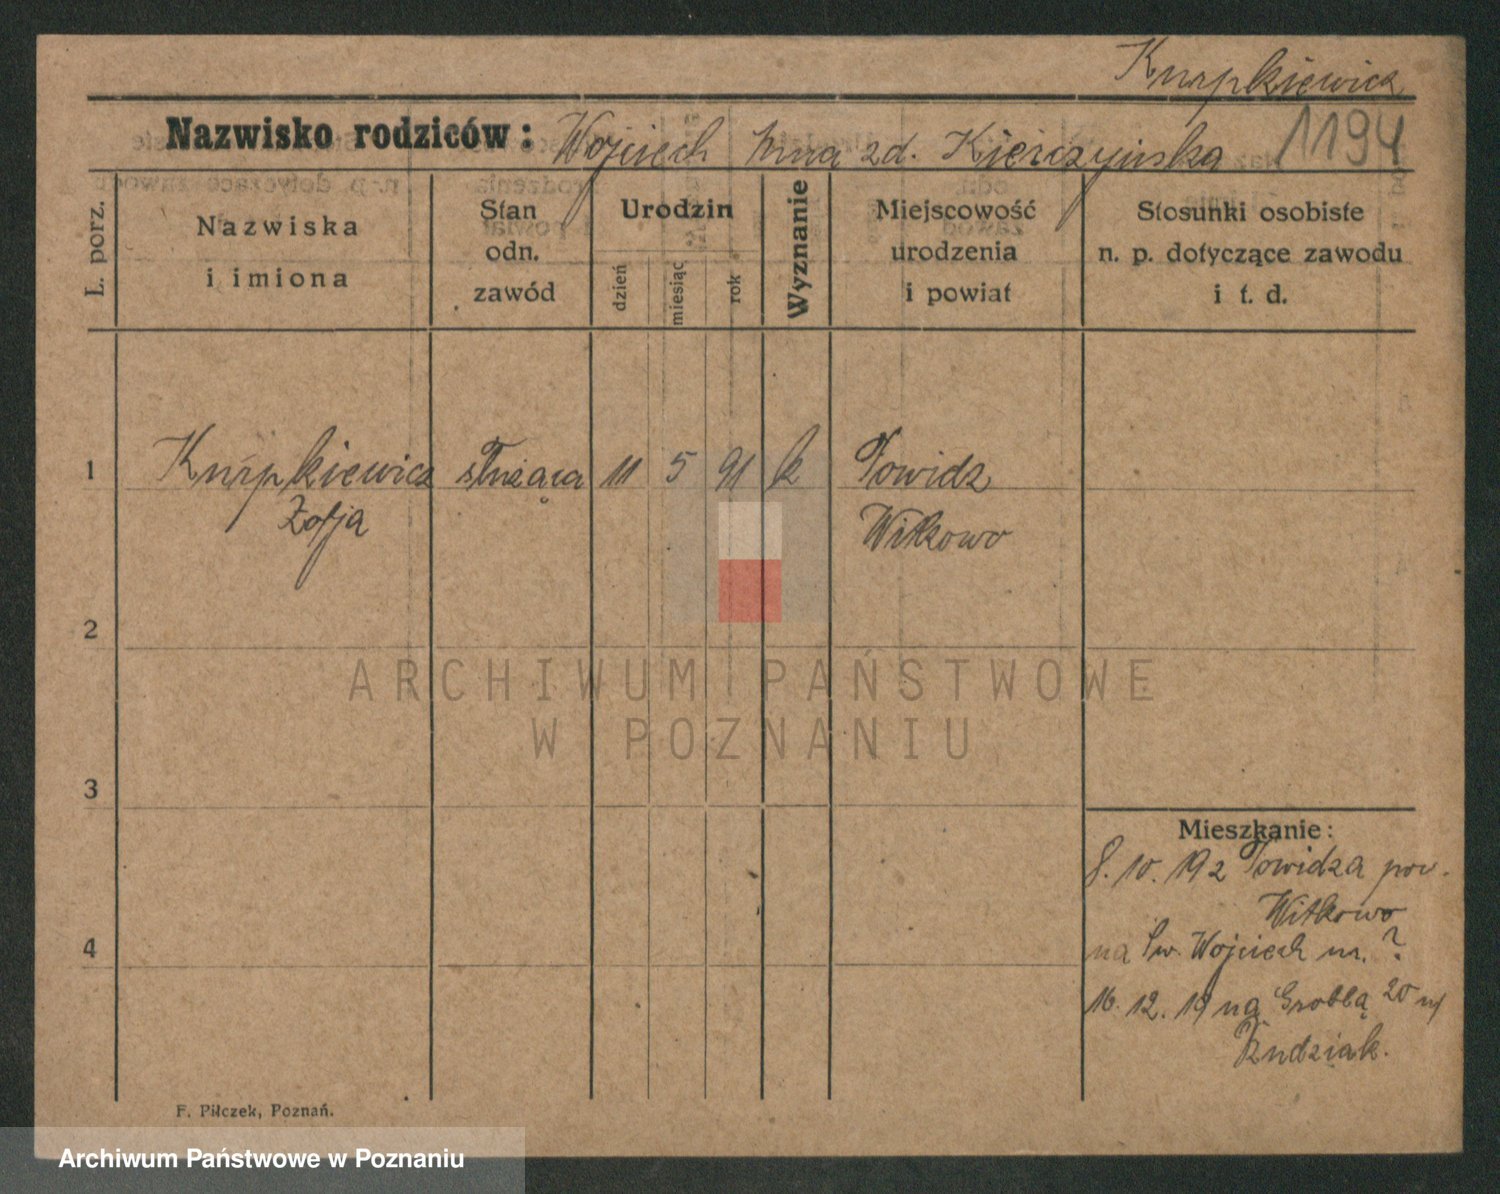 Knapkiewicz
Nazwisko rodziców: Wojciech Anna zd. Kierczyńska 1194
L. porz.
Nazwiska
i imiona
Stan
odn.
zawód
Urodzin
dzień
miesiąc
rok
Wyznanie
Miejscowość
urodzenia
i powiat
Stosunki osobiste
n. p. dotyczące zawodu
i t. d.
1 Knapkiewicz służąca 11 5 91 k Powidz
Zofja Witkowo
2
ARCHIWUM PAŃSTWOWE
W POZNANIU
3
Mieszkanie:
8. 10. 192 Powidza pow.
Witkowo
4
na Św. Wojciech nr. ?
16. 12. 19 na Groblą 20
Rudziak.
F. Piłczek, Poznań.
Archiwum Państwowe w Poznaniu